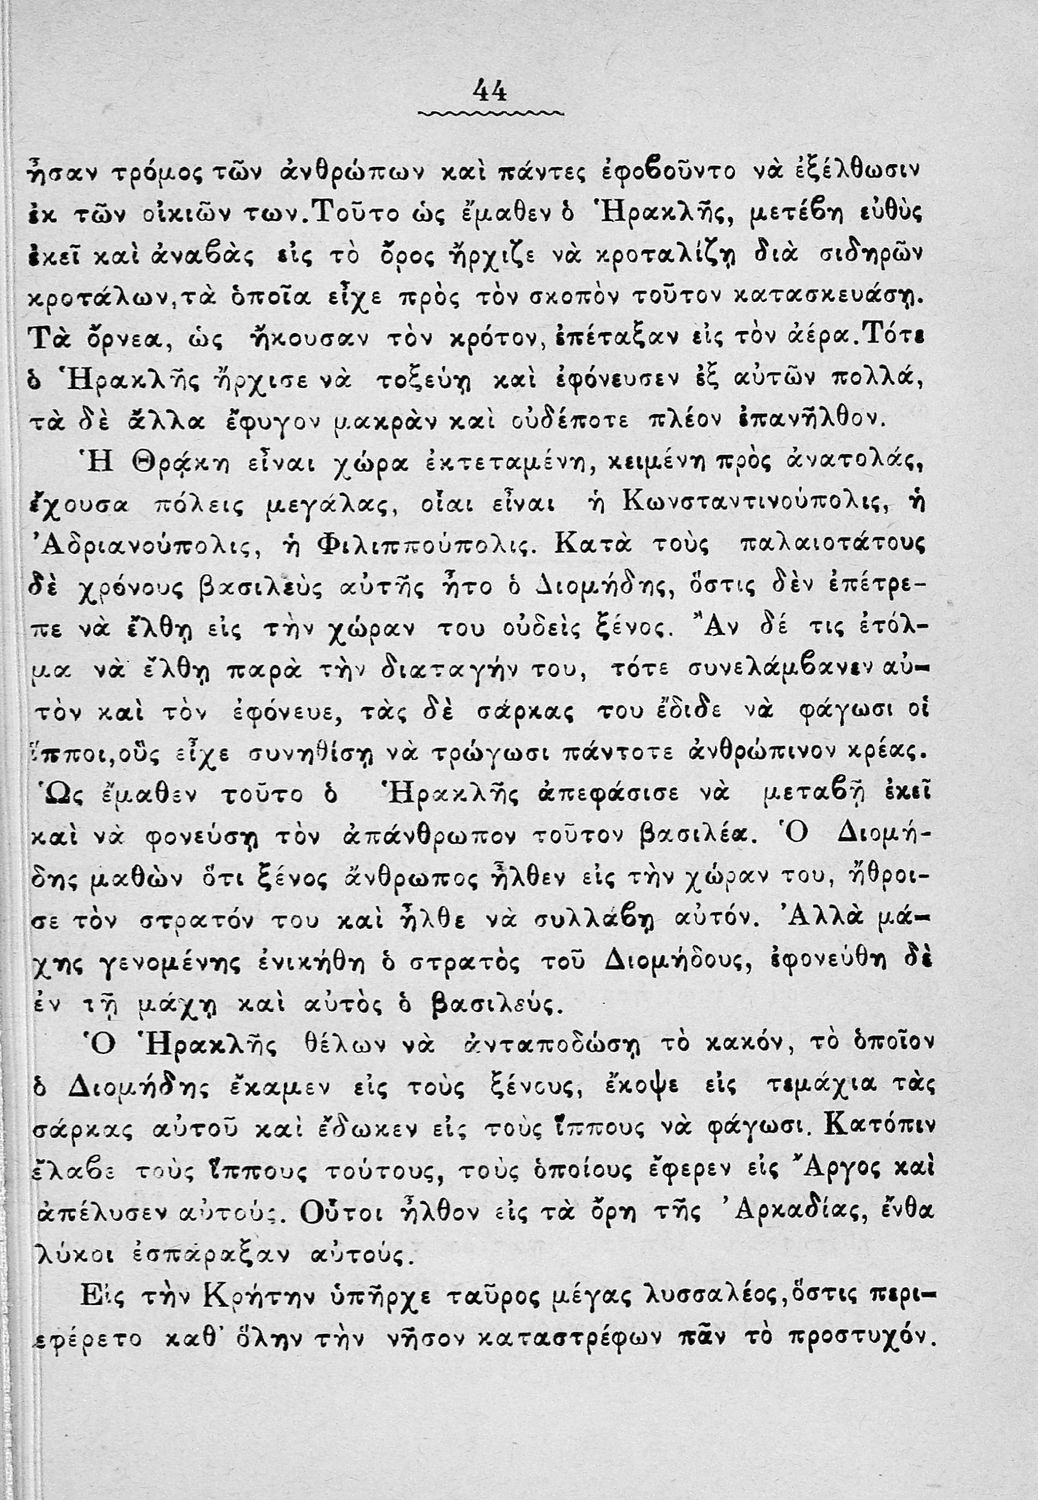 44
ἦσαν τρόμος τῶν ἀνθρώπων καὶ πάντες ἐφοβοῦντο νὰ ἐξέλθωσιν
ἐκ τῶν οἰκιῶν των. Τοῦτο ὡς ἔμαθεν ὁ Ἡρακλῆς, μετέβη εὐθὺς
ἐκεῖ καὶ ἀναβὰς εἰς τὸ ὄρος ἤρχιζε νὰ κροταλίζῃ διὰ σιδηρῶν
κροτάλων, τὰ ὁποῖα εἶχε πρὸς τὸν σκοπὸν τοῦτον κατασκευάσῃ.
Τὰ ὄρνεα, ὡς ἤκουσαν τὸν κρότον, ἐπέταξαν εἰς τὸν ἀέρα. Τότε
ὁ Ἡρακλῆς ἤρχισε νὰ τοξεύῃ καὶ ἐφόνευσεν ἐξ αὐτῶν πολλά,
τὰ δὲ ἄλλα ἔφυγον μακρὰν καὶ οὐδέποτε πλέον ἐπανῆλθον.
Ἡ Θρᾴκη εἶναι χώρα ἐκτεταμένη, κειμένη πρὸς ἀνατολάς,
ἔχουσα πόλεις μεγάλας, οἷαι εἶναι ἡ Κωνσταντινούπολις, ἡ
Ἀδριανούπολις, ἡ Φιλιππούπολις. Κατὰ τοὺς παλαιοτάτους
δὲ χρόνους βασιλεὺς αὐτῆς ἦτο ὁ Διομήδης, ὅστις δὲν ἐπέτρε-
πε νὰ ἔλθῃ εἰς τὴν χώραν του οὐδεὶς ξένος. Ἂν δέ τις ἐτόλ-
μα νὰ ἔλθῃ παρὰ τὴν διαταγήν του, τότε συνελάμβανεν αὐ-
τὸν καὶ τὸν ἐφόνευε, τὰς δὲ σάρκας του ἔδιδε νὰ φάγωσι οἱ
ἵπποι, οὓς εἶχε συνηθίσῃ νὰ τρώγωσι πάντοτε ἀνθρώπινον κρέας.
Ὡς ἔμαθεν τοῦτο ὁ Ἡρακλῆς ἀπεφάσισε νὰ μεταβῇ ἐκεῖ
καὶ νὰ φονεύσῃ τὸν ἀπάνθρωπον τοῦτον βασιλέα. Ὁ Διομή-
δης μαθὼν ὅτι ξένος ἄνθρωπος ἦλθεν εἰς τὴν χώραν του, ἤθροι-
σε τὸν στρατόν του καὶ ἦλθε νὰ συλλάβῃ αὐτόν. Ἀλλὰ μά-
χης γενομένης ἐνικήθη ὁ στρατὸς τοῦ Διομήδους, ἐφονεύθη δὲ
ἐν τῇ μάχῃ καὶ αὐτὸς ὁ βασιλεύς.
Ὁ Ἡρακλῆς θέλων νὰ ἀνταποδώσῃ τὸ κακόν, τὸ ὁποῖον
ὁ Διομήδης ἔκαμεν εἰς τοὺς ξένους, ἔκοψε εἰς τεμάχια τὰς
σάρκας αὐτοῦ καὶ ἔδωκεν εἰς τοὺς ἵππους νὰ φάγωσι. Κατόπιν
ἔλαβε τοὺς ἵππους τούτους, τοὺς ὁποίους ἔφερεν εἰς Ἄργος καὶ
ἀπέλυσεν αὐτούς. Οὗτοι ἦλθον εἰς τὰ ὄρη τῆς Ἀρκαδίας, ἔνθα
λύκοι ἐσπάραξαν αὐτούς.
Εἰς τὴν Κρήτην ὑπῆρχε ταῦρος μέγας λυσσαλέος, ὅστις περι-
εφέρετο καθ' ὅλην τὴν νῆσον καταστρέφων πᾶν τὸ προστυχόν.